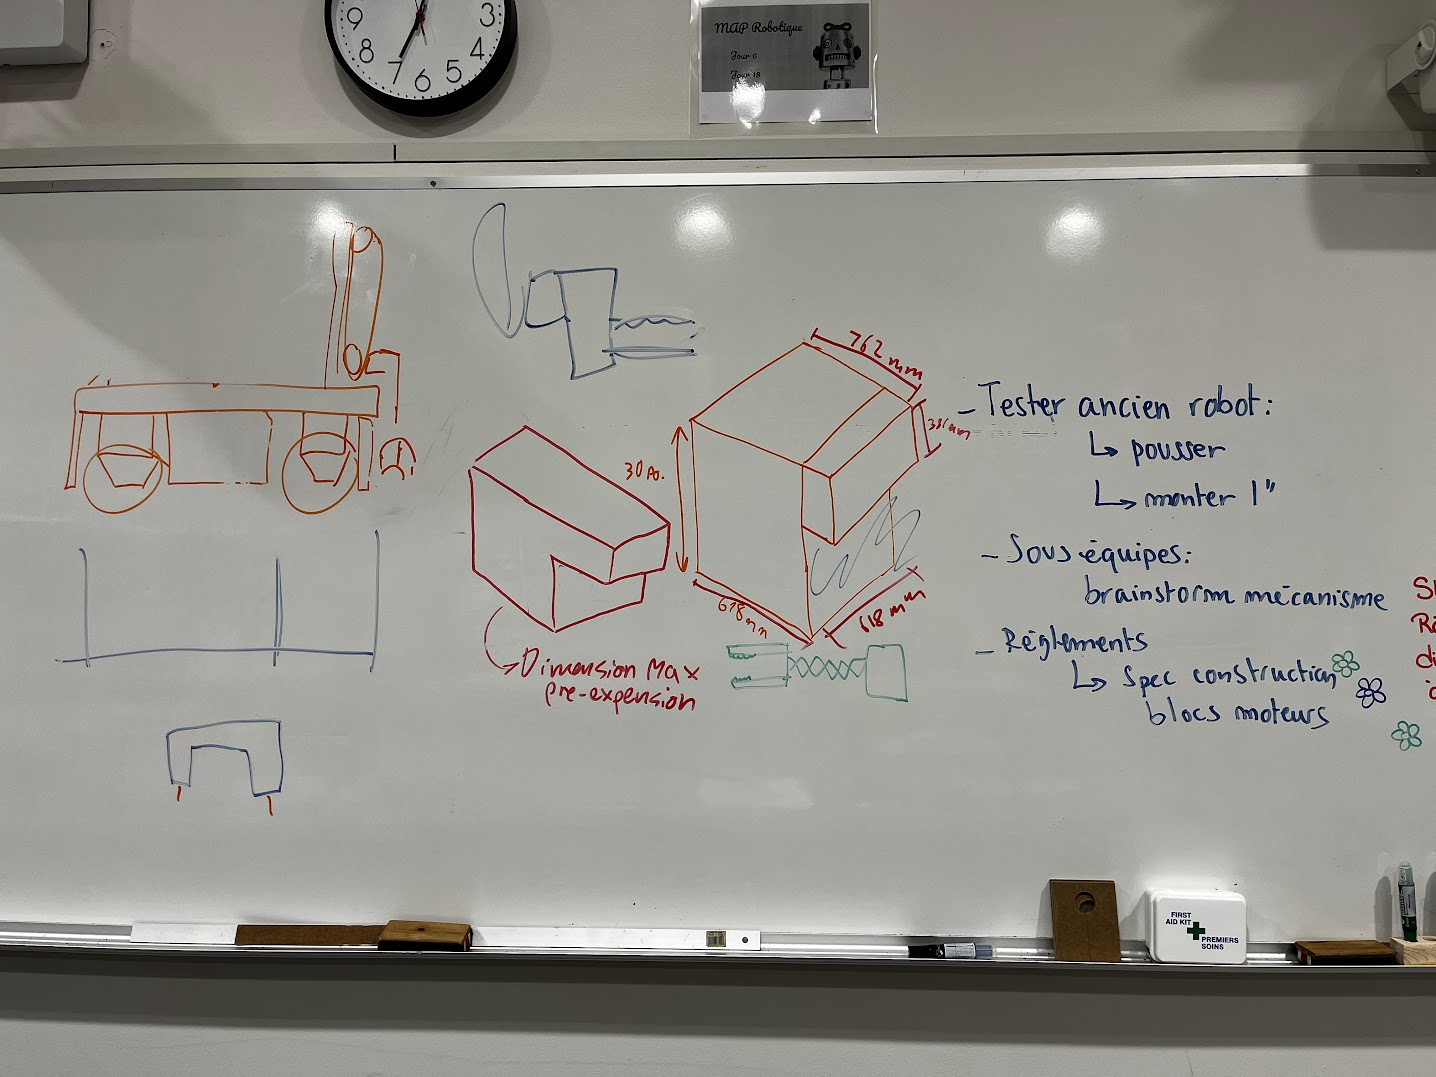 9
3
8
4
7
6
5
MAP Robotique
Jour 6
Jour 18
762 mm
381 mm
30 Po.
618 mm
618 mm
Dimension Max
pré-expension
- Tester ancien robot:
↳ pousser
↳ monter 1"
- Sous-équipes:
brainstorm mécanisme
- Réglements
↳ Spec construction
blocs moteurs
FIRST
AID KIT
PREMIERS
SOINS